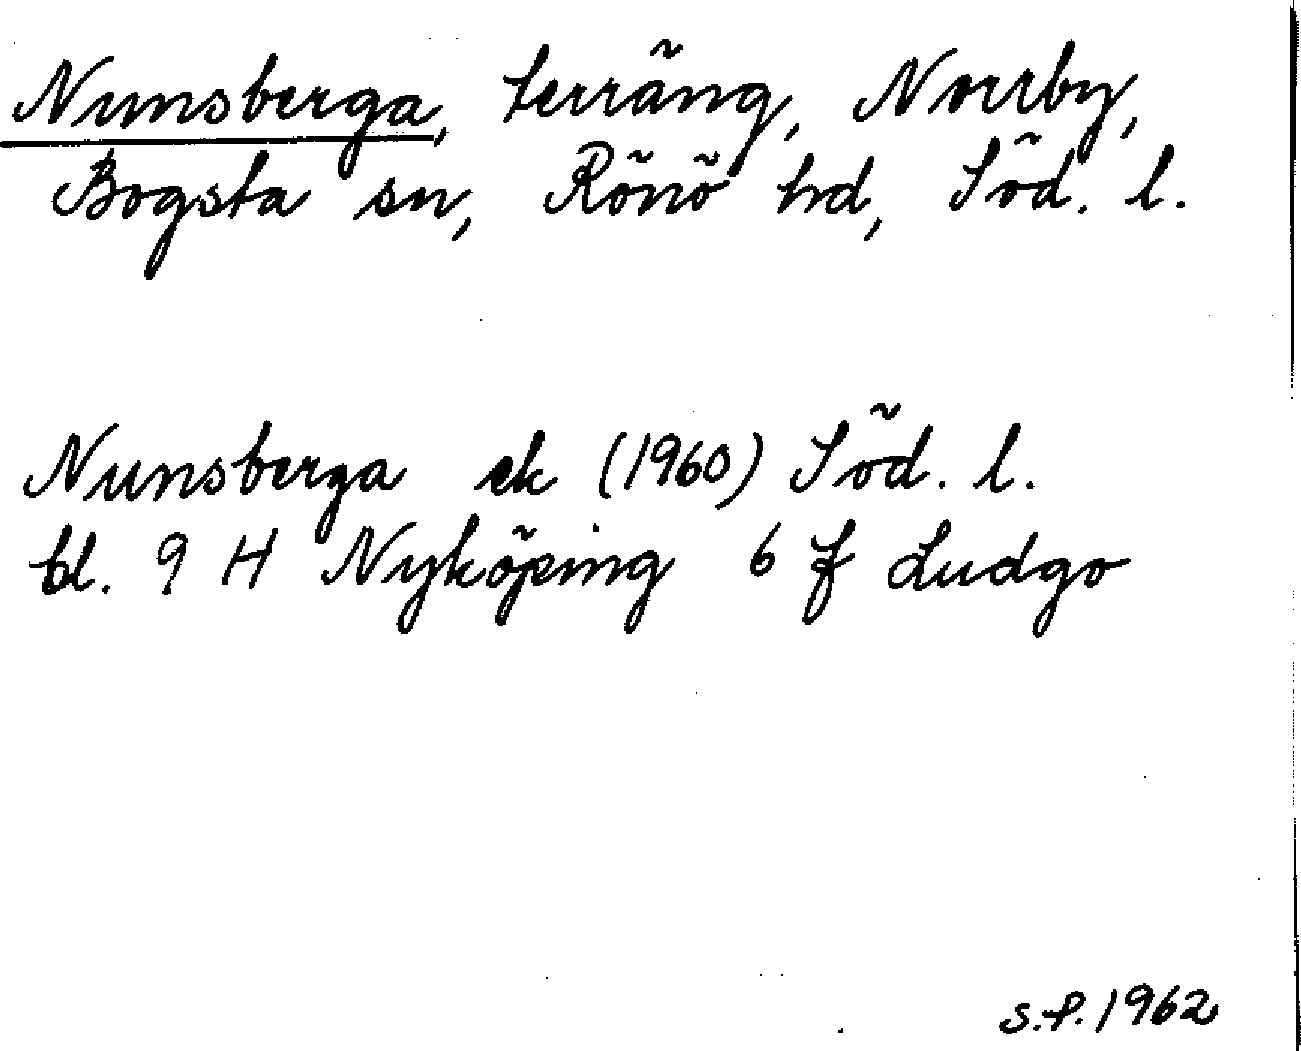 Nunsberga, terräng, Norrby,
Bogsta sn, Rönö hd, Söd. l.
Nunsberga ek (1960) Söd. l.
bl. 9 H Nyköping 6 f Ludgo
S.P. 1962